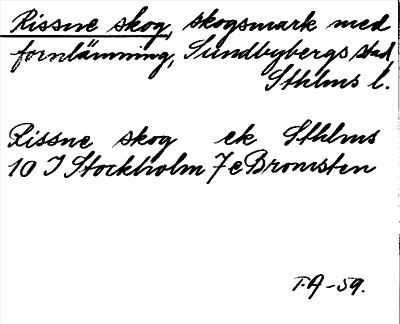 Rissne skog, skogsmark med
fornlämning, Sundbybergs stad,
Sthlms l.
Rissne skog ek Sthlms
10 I Stockholm 7 e Bromsten
T.A-59.